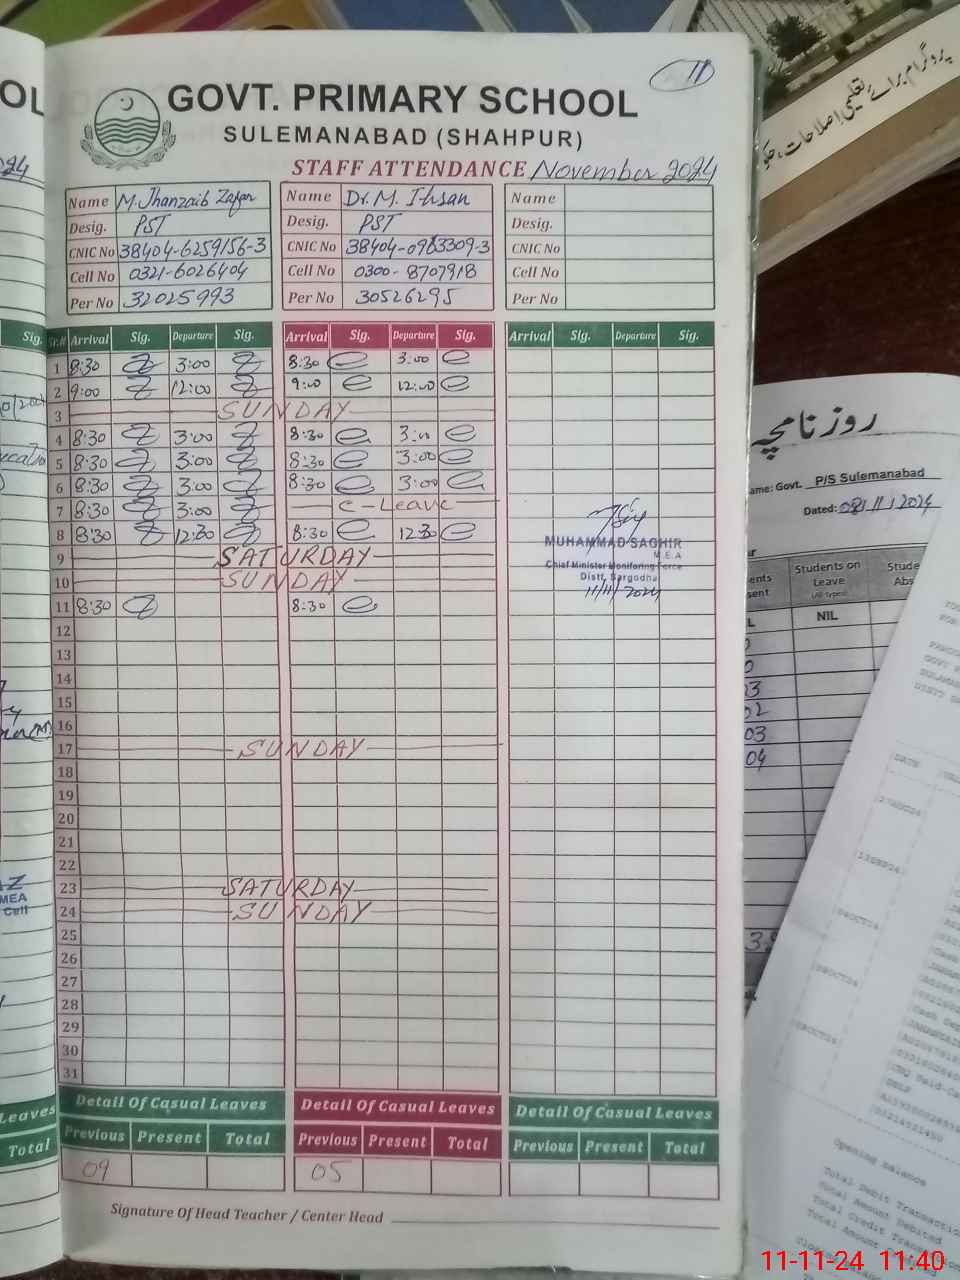 11
GOVT. PRIMARY SCHOOL
SULEMANABAD (SHAHPUR)
STAFF ATTENDANCE November 2024
Name M. Jhanzaib Zafar Name Dr. M. Ihsan Name
Desig. PST Desig. PST Desig.
CNIC No 38404-6259156-3 CNIC No 38404-0963309-3 CNIC No
Cell No 0321-6026404 Cell No 0300-8707918 Cell No
Per No 32025993 Per No 30526295 Per No
Sr.# Arrival Sig. Departure Sig. Arrival Sig. Departure Sig. Arrival Sig. Departure Sig.
1 8:30 3:00 8:30 3:00
2 9:00 12:00 9:00 12:00
3 SUNDAY
4 8:30 3:00 8:30 3:00
5 8:30 3:00 8:30 3:00
6 8:30 3:00 8:30 3:00
7 8:30 3:00 C-Leave
8 8:30 12:30 8:30 12:30
9 SATURDAY
10 SUNDAY
11 8:30 8:30
12
13
14
15
16
17 SUNDAY
18
19
20
21
22
23 SATURDAY
24 SUNDAY
25
26
27
28
29
30
31
MUHAMMAD SAGHIR
M.E.A
Chief Minister Monitoring Force
Distt. Sargodha
11/11/2024
Detail Of Casual Leaves Detail Of Casual Leaves Detail Of Casual Leaves
Previous Present Total Previous Present Total Previous Present Total
09 05
Signature Of Head Teacher / Center Head
OL
Sig.
MEA
Cell
Leaves
Total
پروگرام برائے تعلیمی اصلاحات،
روزنامچہ
ame: Govt. P/S Sulemanabad
Dated: 08/11/2024
Students on
Leave
(All types)
NIL
03
04
DATE
Opening Balance
Total Debit Transactio
Total Amount Debited
Total Credit Transact
Total Amount
11-11-24 11:40